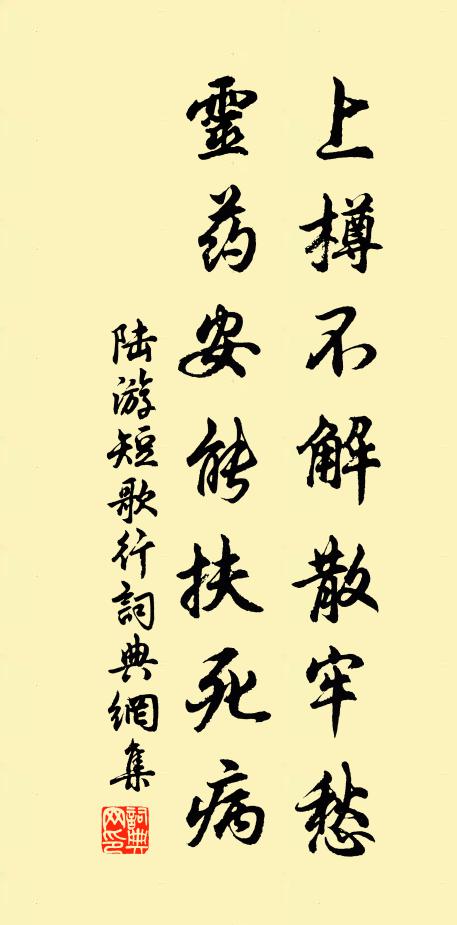 上樽不解散牢愁
靈药安能扶死病
陆游短歌行詞典網集
詞典網印